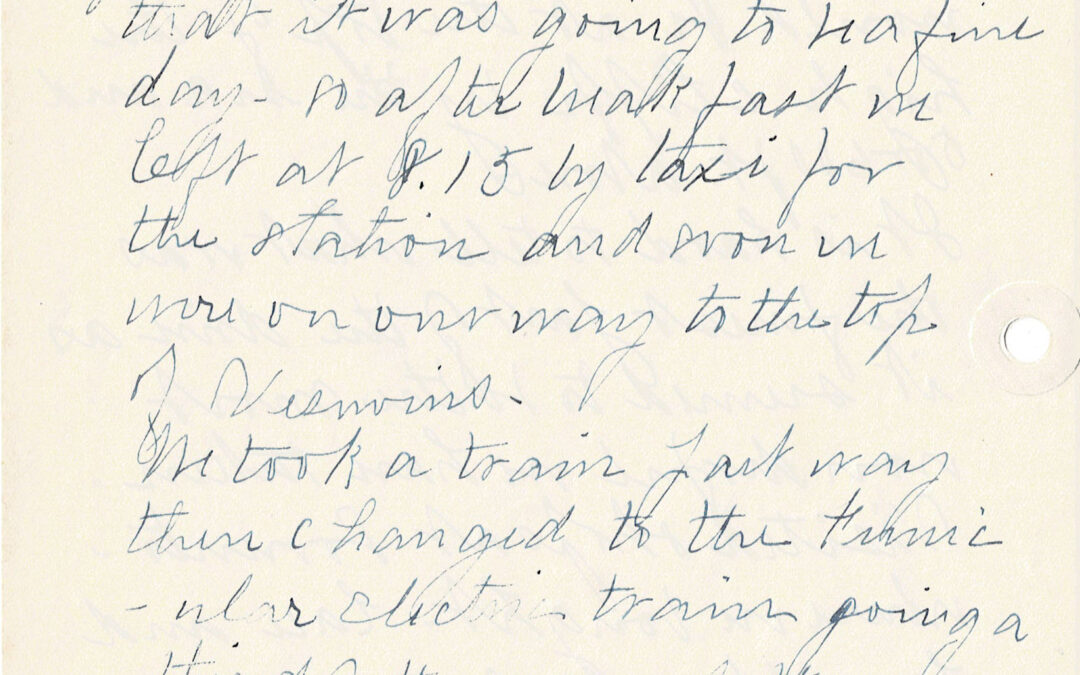 that it was going to be a fine
day - so after breakfast we
left at 8.15 by taxi for
the station and soon we
were on our way to the top
of Vesuvius -
We took a train part way
then changed to the Funic
- ular electric train going a
third